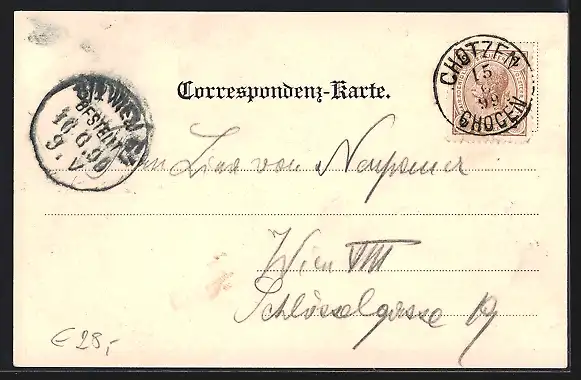 Correspondenz-Karte.
CHOTZEN
15
99
CHOCEN
WIEN
BESTELLT
16.6.99
9.V
Lina von
Wien VIII
Schlösselgasse
€ 28,-